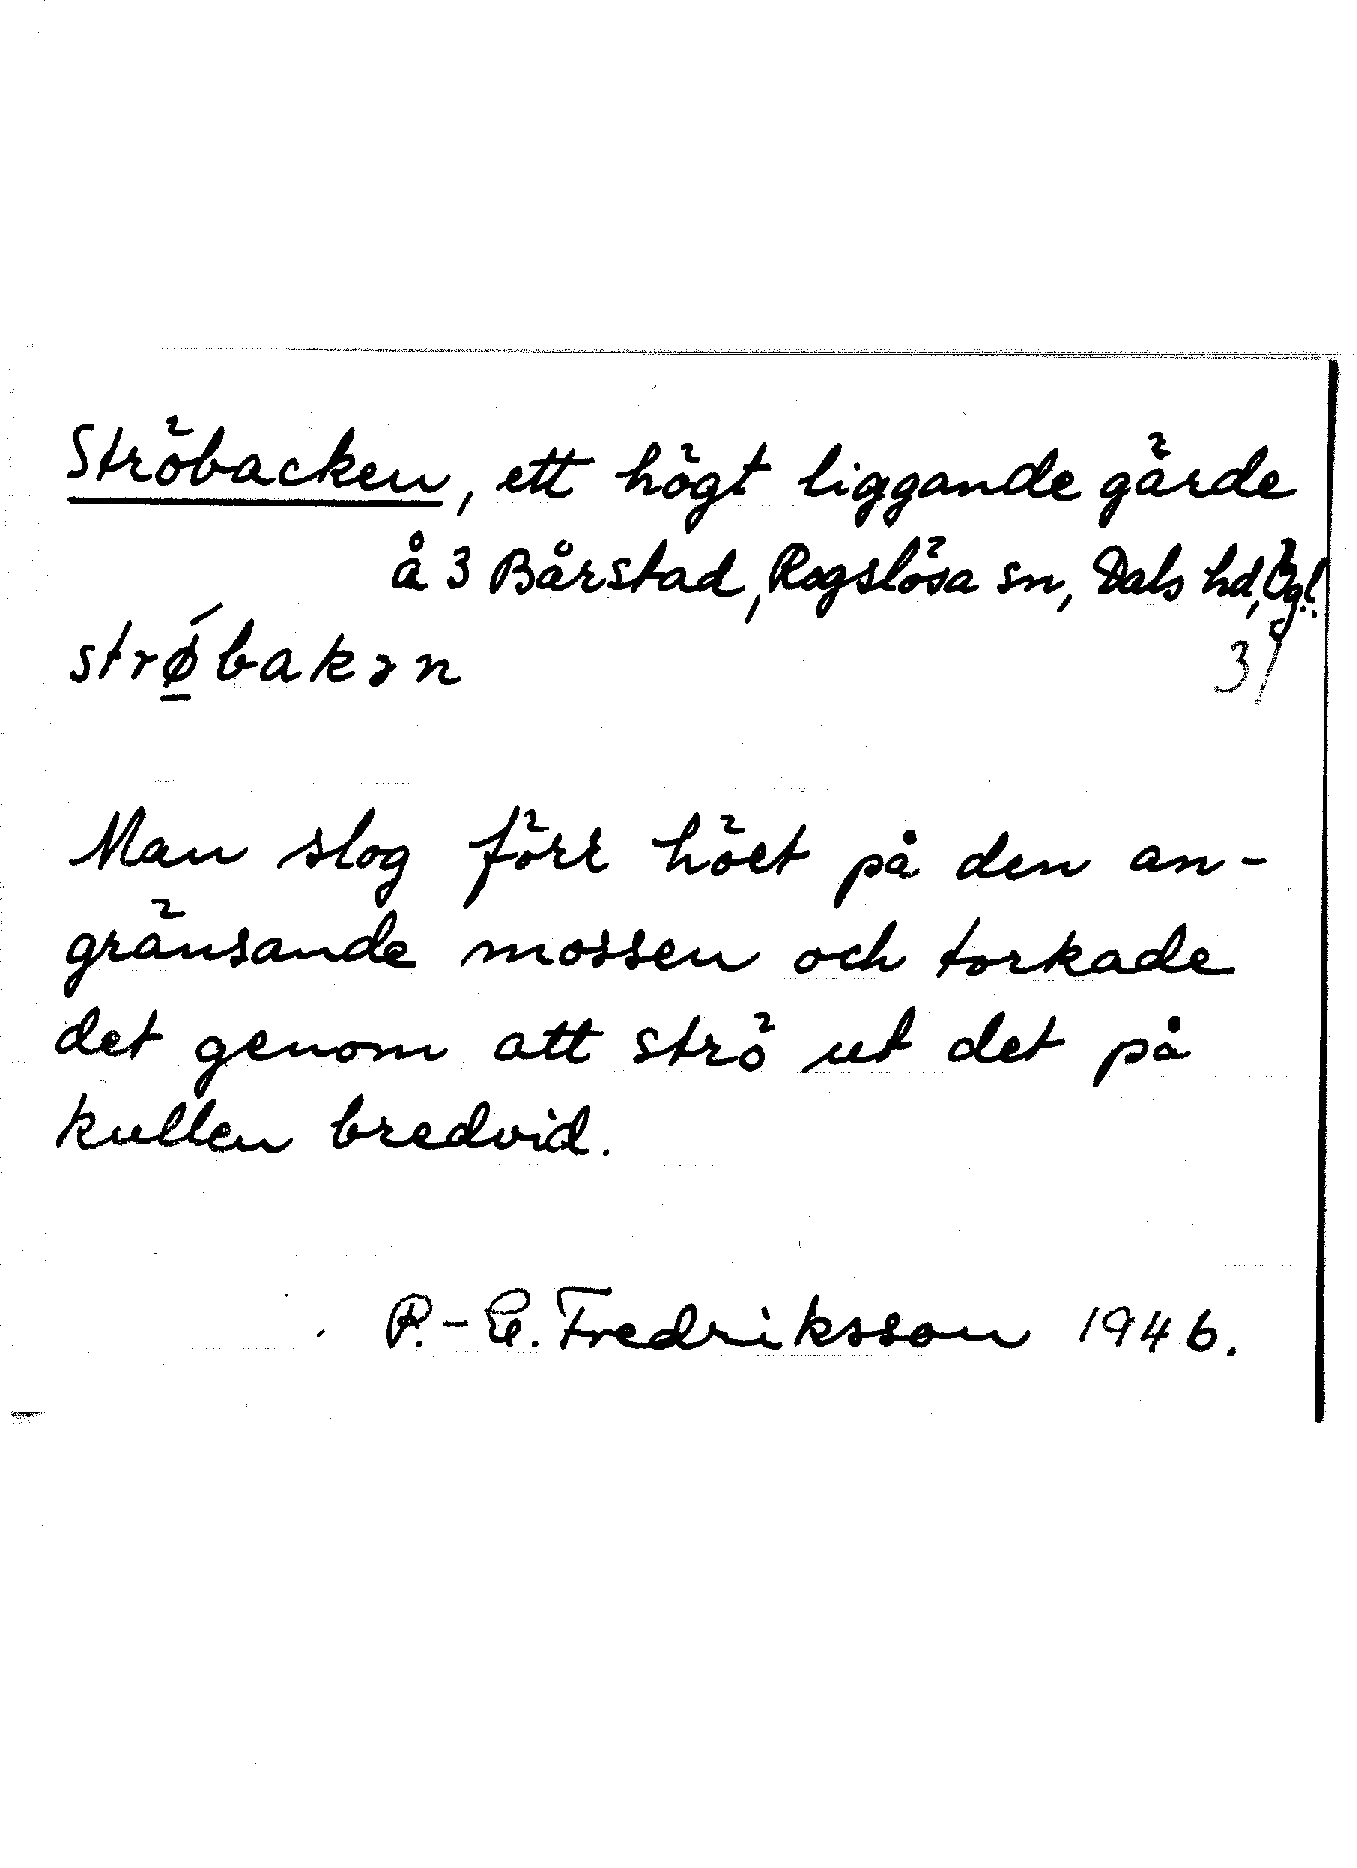 Ströbacken, ett högt liggande gärde
å 3 Bårstad, Rogslösa sn, Dals hd, Ögl.
strǿ̱bakən
3/
Man slog förr höet på den an-
gränsande mossen och torkade
det genom att strö ut det på
kullen bredvid.
P.-E. Fredriksson 1946.